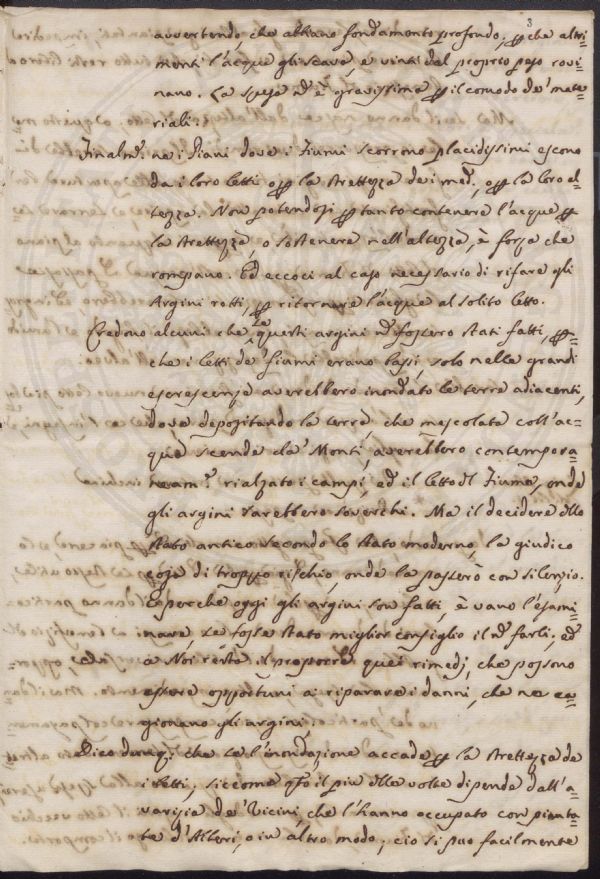 3
avvertendo, che abbiano fondamento profondo; ꝑche altri=
menti l'acque gli scava, e vinti dal proprio peso rovi=
nano. La spesa nō è gravissima ꝑ il comodo de' mate=
riali.
Finalmē. ne i Piani dove i Fiumi scorrono placidissimi escono
da i loro letti o ꝑ la strettezza dei med.i, o ꝑ la loro al=
tezza. Non potendosi ꝑtanto contenere l'acque ꝑ
la strettezza, o sostenere nell'altezza, è forza che
rompano. Ed eccoci al caso necessario di rifare gli
Argini rotti, ꝑ ritornare l'acque al solito letto.
Credono alcuni che se questi argini nō fossero stati fatti, ꝑ=
che i letti de' fiumi erano bassi, solo nelle grandi
escrescenze averebbero inondato le terre adiacenti,
dove depositando la terra, che mescolata coll'ac=
que scende da' Monti, averebbero contempora=
neam.e rialzato i campi, ed il letto dl Fiume, onde
gli argini sarebbero soverchi. Ma il decidere dllo
stato antico secondo lo stato moderno, la giudico
cosa di troppo rischio, onde la passerò con silenzio.
E perche oggi gli argini son fatti, è vano l'esami=
nare, se fosse stato miglior consiglio il nō farli; ed
a Noi resta il proporre quei rimedj, che possono
essere opportuni a riparare i danni, che ne ca=
gionano gli argini.
Dico dunqꝫ che se l'inondazione accade ꝑ la strettezza de
i letti, siccome qto il più dlle volte dipende dall'a=
varizia de' Vicini, che l'hanno occupato con pianta=
te d'Alberi, o in altro modo, ciò si può facilmente